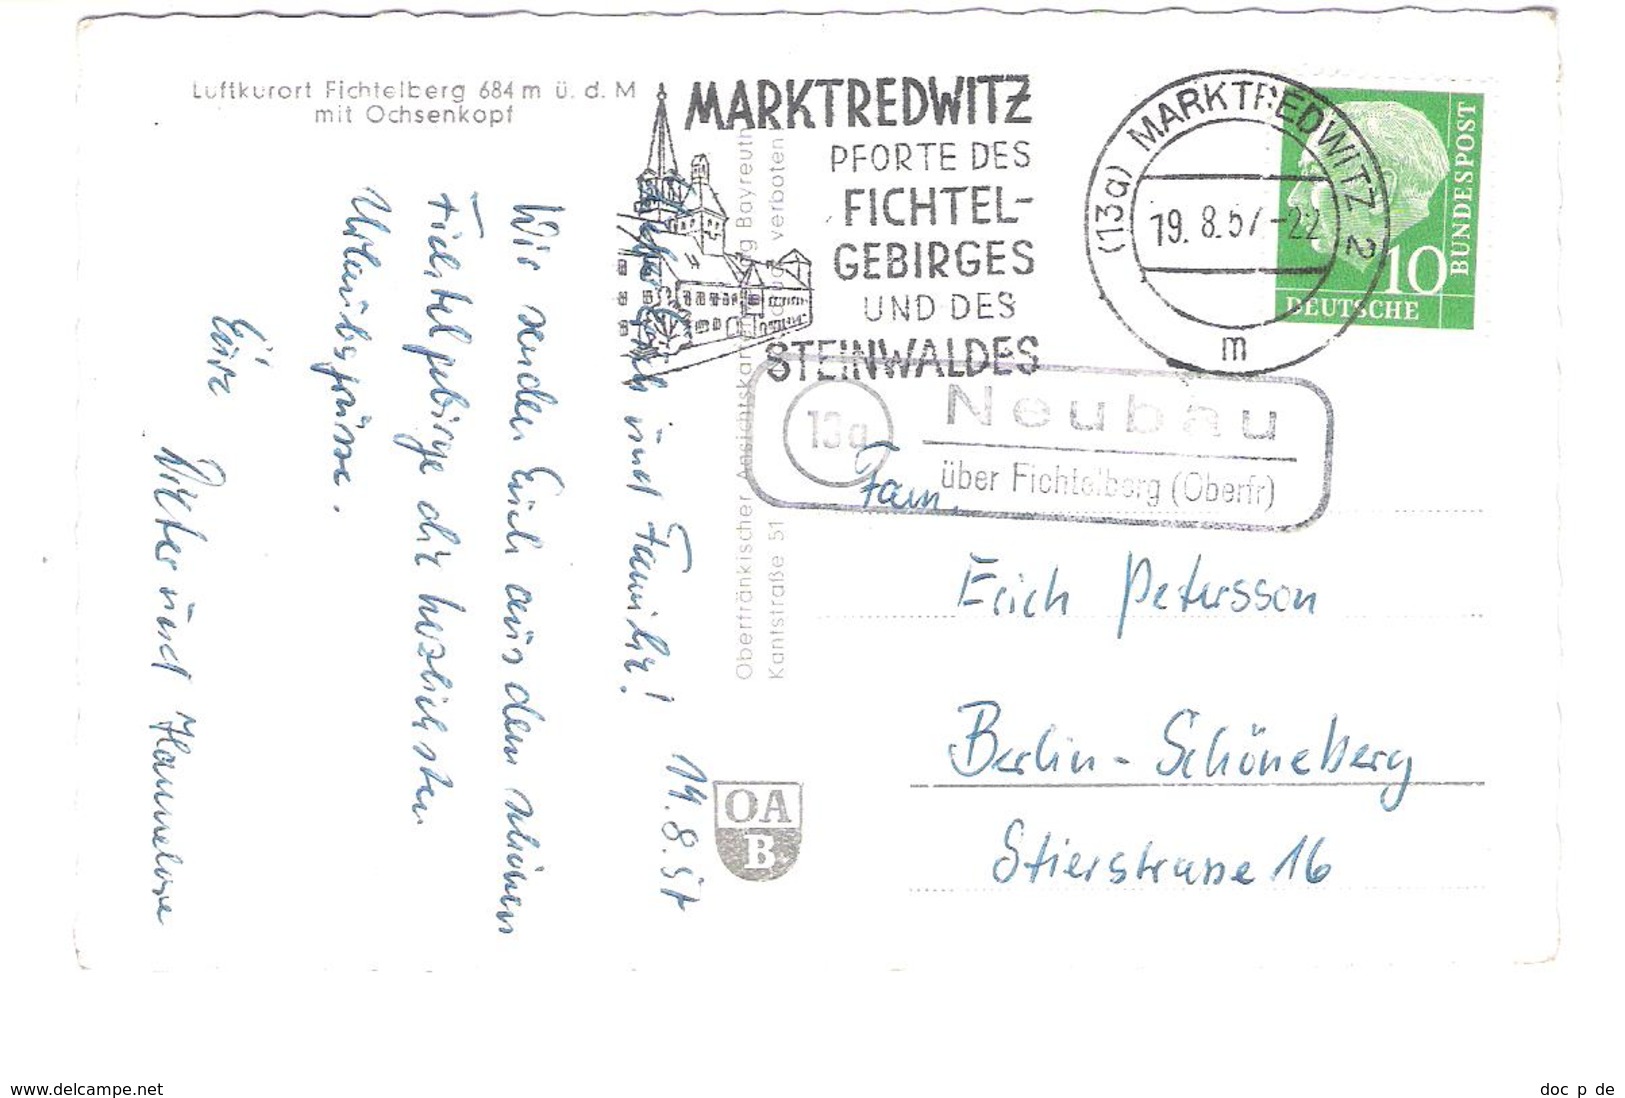 Luftkurort Fichtelberg 684 m ü. d. M
mit Ochsenkopf
MARKTREDWITZ
PFORTE DES
FICHTEL-
GEBIRGES
UND DES
STEINWALDES
(13a) MARKTREDWITZ 2
19. 8. 57 -22
m
10
DEUTSCHE
BUNDESPOST
13a
Neubau
über Fichtelberg (Oberfr)
14. 8. 57
Erich und Familie!
Wir senden Euch aus dem schönen
Fichtelgebirge die herzlichsten
Urlaubsgrüsse.
Eure
Dieter und Hannelore
Oberfränkischer Ansichtskarten Bayreuth
Kantstraße 51 verboten
OA
B
Fam.
Erich Petersson
Berlin-Schöneberg
Stierstrasse 16
www.delcampe.net
doc_p_de